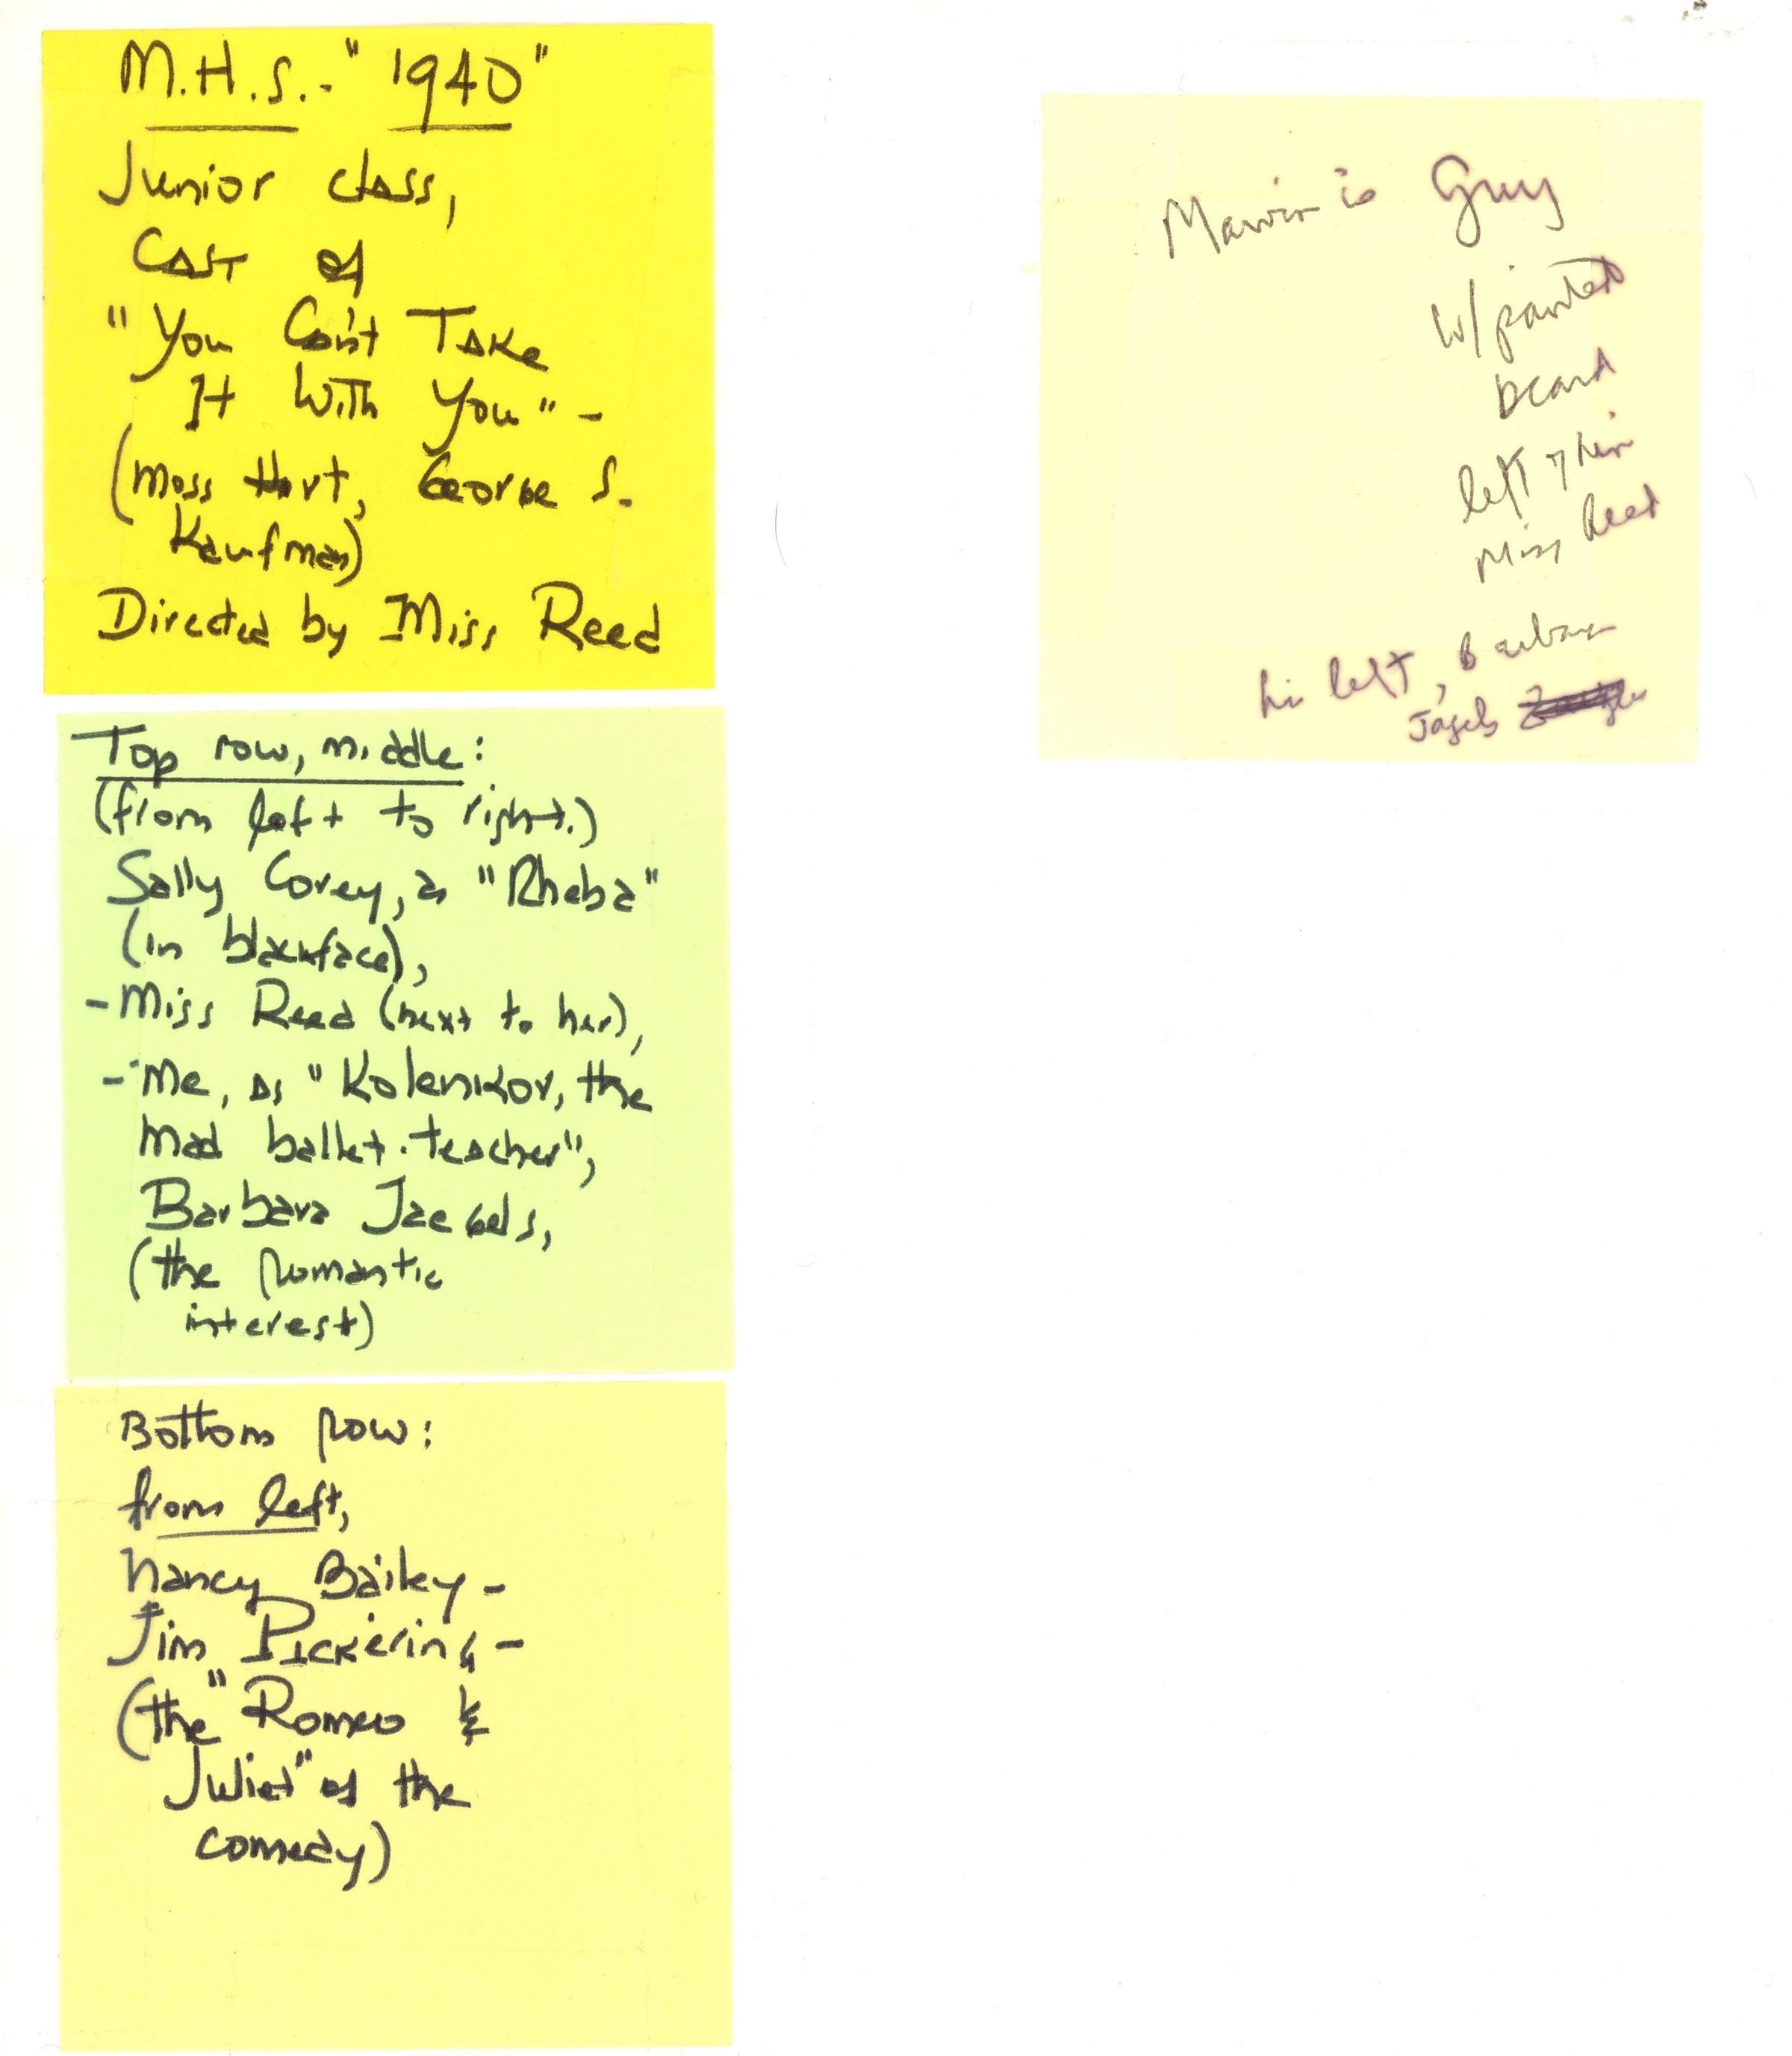 M.H.S. - "1940"
Junior class,
Cast of
"You Can't Take
It With You" -
(Moss Hart, George S.
Kaufman)
Directed by Miss Reed
Top row, middle:
(from left to right.)
Sally Corey, as "Rheba"
(in blackface),
- Miss Reed (next to her),
- Me, as "Kolenkov, the
mad ballet-teacher",
Barbara Jaegels,
(the romantic
interest)
Bottom row:
from left,
Nancy Bailey -
Jim Pickering -
(the "Romeo &
Juliet" of the
comedy)
Marvin is Guy
w/painted
beard
left of him
Miss Reed
his left, Barbara
Jagels